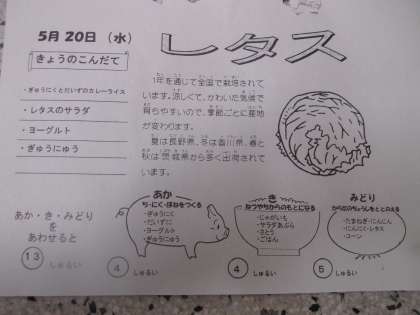 5月20日（水）
レタス
きょうのこんだて
・ぎゅうにくとだいずのカレーライス
・レタスのサラダ
・ヨーグルト
・ぎゅうにゅう
1年を通じて全国で栽培されて
います。涼しくて、かわいた気候で
育ちやすいので、季節ごとに産地
が変わります。
夏は長野県、冬は香川県、春と
秋は茨城県から多く出荷されて
います。
あか・き・みどり
を
あわせると
13 しゅるい
あか
ち・にく・ほねをつくる
・ぎゅうにく
・だいず
・ヨーグルト
・ぎゅうにゅう
4 しゅるい
き
ねつやちからのもとになる
・じゃがいも
・サラダあぶら
・さとう
・ごはん
4 しゅるい
みどり
からだのちょうしをととのえる
・たまねぎ・にんじん
・にんにく・レタス
・コーン
5 しゅるい